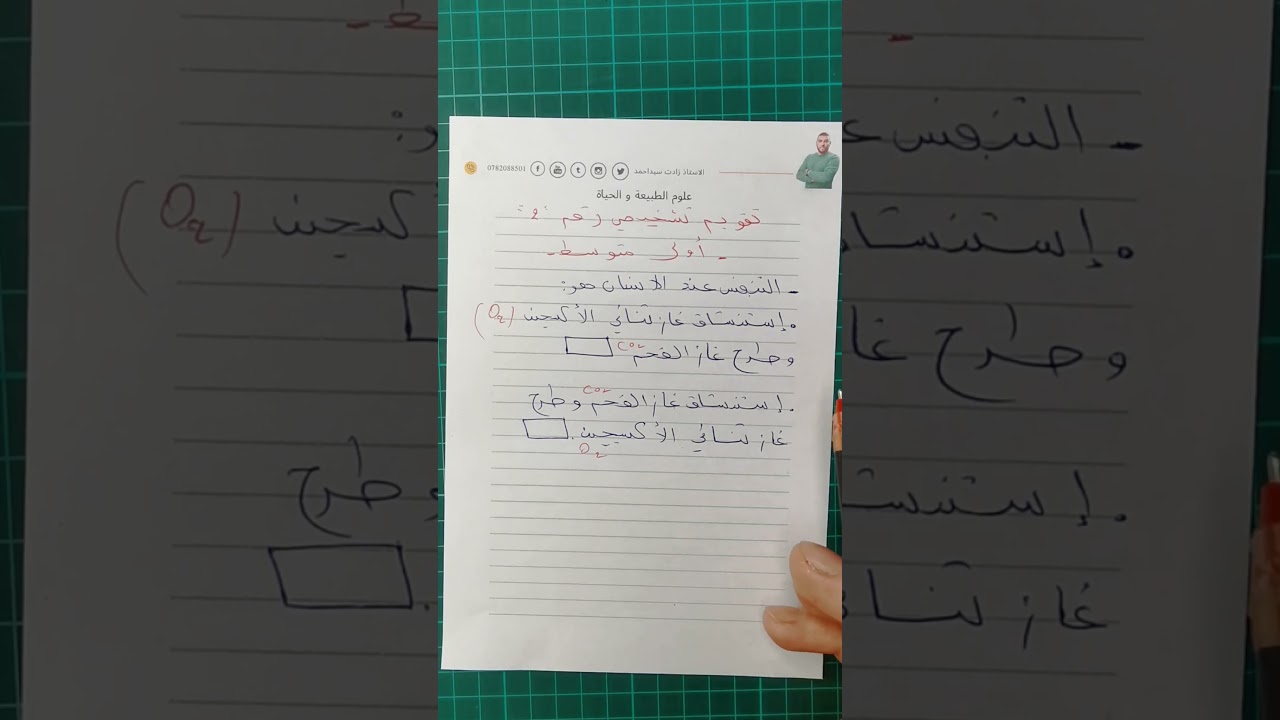 الاستاذ زادت سيداحمد 0782088501
علوم الطبيعة و الحياة
تقويم تشخيصي رقم "2"
- أولى متوسط -
- التنفس عند الانسان هو:
• إستنشاق غاز ثنائي الأكسجين (O2)
وطرح غاز الفحم CO2
• إستنشاق غاز الفحم CO2 وطرح
غاز ثنائي الأكسجين. O2